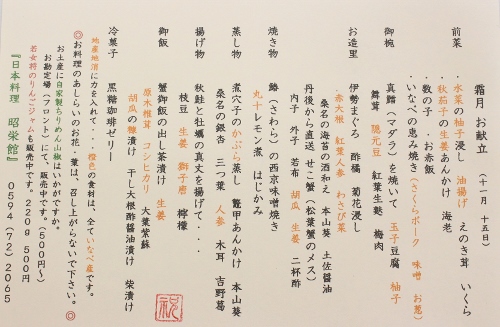 霜月 お献立 (十一月 十五日)
前菜
・水菜の柚子浸し 油揚げ えのき茸 いくら
・秋茄子の生姜あんかけ 海老
・数の子 ・お赤飯
・いなべの恵み焼き(さくらポーク 味噌 お葱)
御椀
真鱈(マダラ)を焼いて 玉子豆腐 柚子
舞茸 隠元豆 紅葉生麩 梅肉
お造里
伊勢まぐろ 酢橘 菊花浸し
・赤大根 紅葉人参 わさび菜
桑名の海苔の酒和え 本山葵 土佐醤油
丹後から直送 せこ蟹(松葉蟹のメス)
内子 外子 若布 胡瓜 生姜 二杯酢
焼き物
鰆(さわら)の西京味噌焼き
丸十レモン煮 はじかみ
蒸し物
煮穴子のかぶら蒸し 鼈甲あんかけ 本山葵
桑名の銀杏 三つ葉 人参 木耳 吉野葛
揚げ物
秋鮭と牡蠣の真丈を揚げて・・・
枝豆 生姜 獅子唐 檸檬
御飯
蟹御飯の出し茶漬け 生姜
原木椎茸 コシヒカリ 大葉紫蘇
胡瓜の糠漬け 干し大根酢醤油漬け 柴漬け
冷菓子
黒糖珈琲ゼリー
祝
地産地消に力を入れて・・橙色の食材は、全ていなべ産です。
◎お料理のあしらいのお花・葉は、召し上がらないで下さい。◎
お土産に自家製ちりめん山椒はいかがですか。
お勘定場(フロント)にて、販売中です。(500円~)
若女将のりんごジャムも販売中です。220g 500円
『日本料理 昭栄館』 0594(72)2065